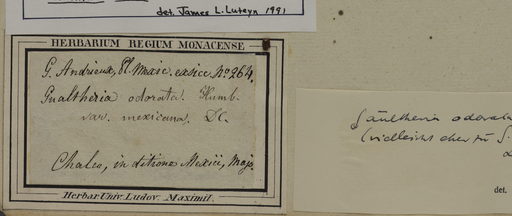 det. James L. Luteyn 1991
HERBARIUM REGIUM MONACENSE
G. Andrieux, Pl. Mexic. exsicc. no. 264.
Gualtheria odorata. Humb.
var. mexicana. DC.
Chalco, in ditione Mexici, Majo
Herbar. Univ. Ludov. Maximil.
Gaultheria odorata
(vielleicht eher zu G.
det.